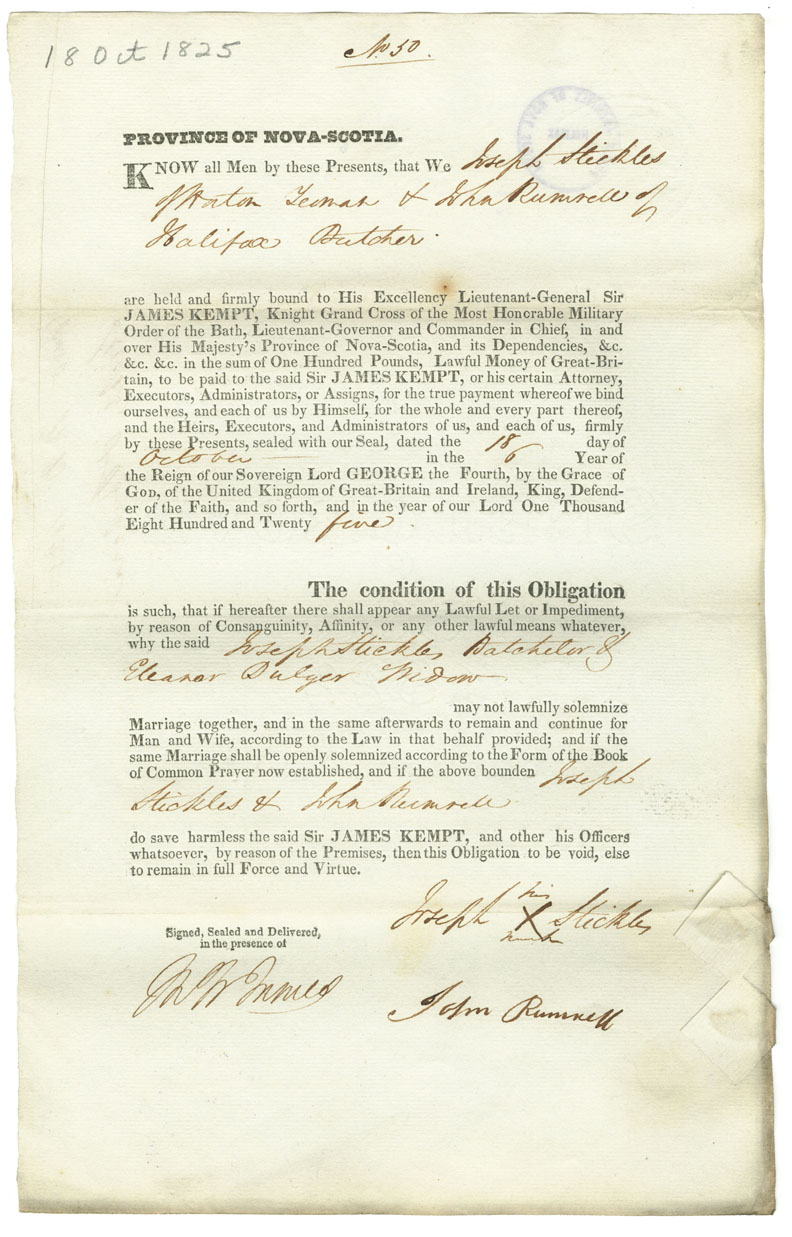 18 Oct 1825
No 50.
PROVINCE OF NOVA-SCOTIA.
KNOW all Men by these Presents, that We Joseph Stickles
of Horton Yeoman & John Rumrell of
Halifax Butcher.
are held and firmly bound to His Excellency Lieutenant-General Sir
JAMES KEMPT, Knight Grand Cross of the Most Honorable Military
Order of the Bath, Lieutenant-Governor and Commander in Chief, in and
over His Majesty's Province of Nova-Scotia, and its Dependencies, &c.
&c. &c. in the sum of One Hundred Pounds, Lawful Money of Great-Bri-
tain, to be paid to the said Sir JAMES KEMPT, or his certain Attorney,
Executors, Administrators, or Assigns, for the true payment whereof we bind
ourselves, and each of us by Himself, for the whole and every part thereof,
and the Heirs, Executors, and Administrators of us, and each of us, firmly
by these Presents, sealed with our Seal, dated the 18 day of
October in the 6 Year of
the Reign of our Sovereign Lord GEORGE the Fourth, by the Grace of
GOD, of the United Kingdom of Great-Britain and Ireland, King, Defend-
er of the Faith, and so forth, and in the year of our Lord One Thousand
Eight Hundred and Twenty five.
The condition of this Obligation
is such, that if hereafter there shall appear any Lawful Let or Impediment,
by reason of Consanguinity, Affinity, or any other lawful means whatever,
why the said Joseph Stickles Batchelor &
Eleanor Dulger Widow
may not lawfully solemnize
Marriage together, and in the same afterwards to remain and continue for
Man and Wife, according to the Law in that behalf provided; and if the
same Marriage shall be openly solemnized according to the Form of the Book
of Common Prayer now established, and if the above bounden Joseph
Stickles & John Rumrell
do save harmless the said Sir JAMES KEMPT, and other his Officers
whatsoever, by reason of the Premises, then this Obligation to be void, else
to remain in full Force and Virtue.
his
Joseph X Stickles
mark
Signed, Sealed and Delivered,
in the presence of
John Rumrell